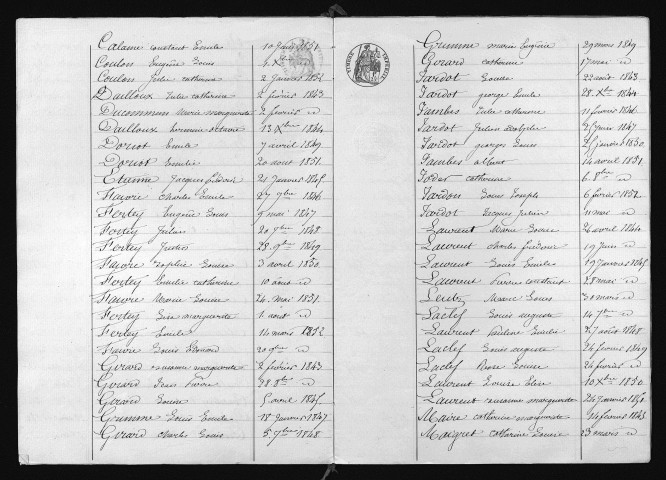 Calame constant Emile 10 Juin 1851
Coulon Eugène Louis 4 Xbre d
Coulon Julie catherine 2 Janvier 1852
Dailloux Julie catherine 2 février 1843
Ducommun Marie marguerite 2 février d
Dailloux octave 13 Xbre 1844
Doriot Emile 7 avril 1849
Doriot Emilie 20 aout 1851
Etienne Jacques frédéric 21 Janvier 1845
Faivre Charles Emile 27 9bre 1846
Ferley Eugène Louis 9 mai 1847
Ferley Julien 20 9bre 1848
Ferley Justin 28 9bre 1849
Faivre Sophie Louise 3 avril 1850
Ferley Emilie catherine 10 aout d
Faivre Marie Louise 24 mai 1851
Ferley marguerite 1 aout d
Ferley Emile 14 mars 1852
Faivre Louis Edouard 20 9bre d
Girard suzanne marguerite 2 février 1843
Girard Pierre 28 8bre d
Girard Louise 5 avril 1845
Grimme Louis Emile 18 Janvier 1847
Girard Charles Louis 5 9bre 1848
TIMBRE IMPERIAL
Grimme marie Eugénie 29 mars 1849
Girard catherine 17 mai d
Jardot Louise 22 aout 1843
Jardot george Emile 28 Xbre 1844
Jambes Julie catherine 11 février 1846
Jardot Julien 25 Janvier 1847
Jardot georges Louis 25 Janvier 1850
Jambes albert 14 avril 1851
Jodet catherine 6 8bre d
Jardon Louis Joseph 6 février 1852
Jardot Jacques Julien 11 mai d
Laurent Marie Louise 24 avril 1844
Laurent charles frédéric 19 Juin d
Laurent Louis Emile 19 Janvier 1845
Laurent Pierre constant 28 mai d
Leuby Marc Louis 30 mars d
Laclef Louis auguste 14 7bre d
Laurent Pauline Emilie 27 aout 1848
Laclef Louis auguste 24 février 1849
Laclef Rose Louise 24 février d
Laurent Louise 10 Xbre 1850
Laurent suzanne marguerite 24 Janvier 1851
Maire catherine marguerite 24 février 1843
Maigret catherine Louise 23 mars d